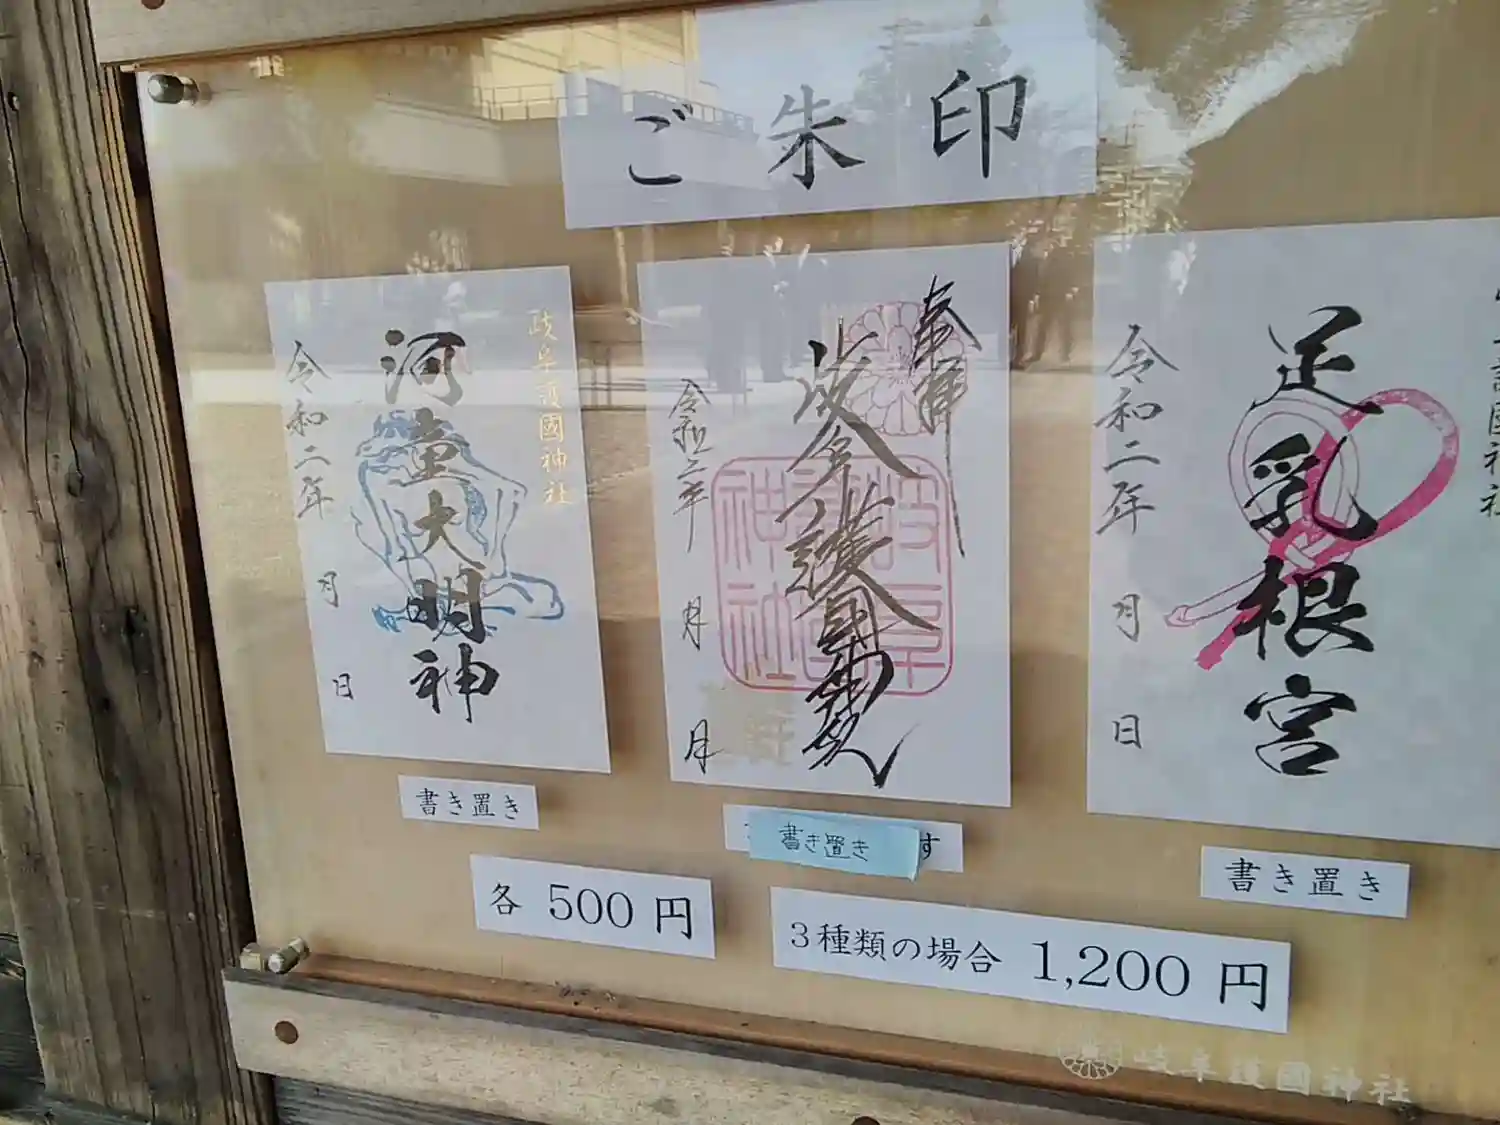 ご朱印
岐阜護國神社
河童大明神
令和二年 月 日
書き置き
奉拝
岐阜護國神社
岐阜護國神社
令和二年 月 日
書き置き
す
護國神社
足乳根宮
令和二年 月 日
書き置き
各 500 円
3種類の場合 1,200 円
岐阜護國神社